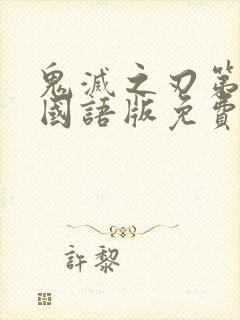 鬼滅之刃第
國語版免費
許黎